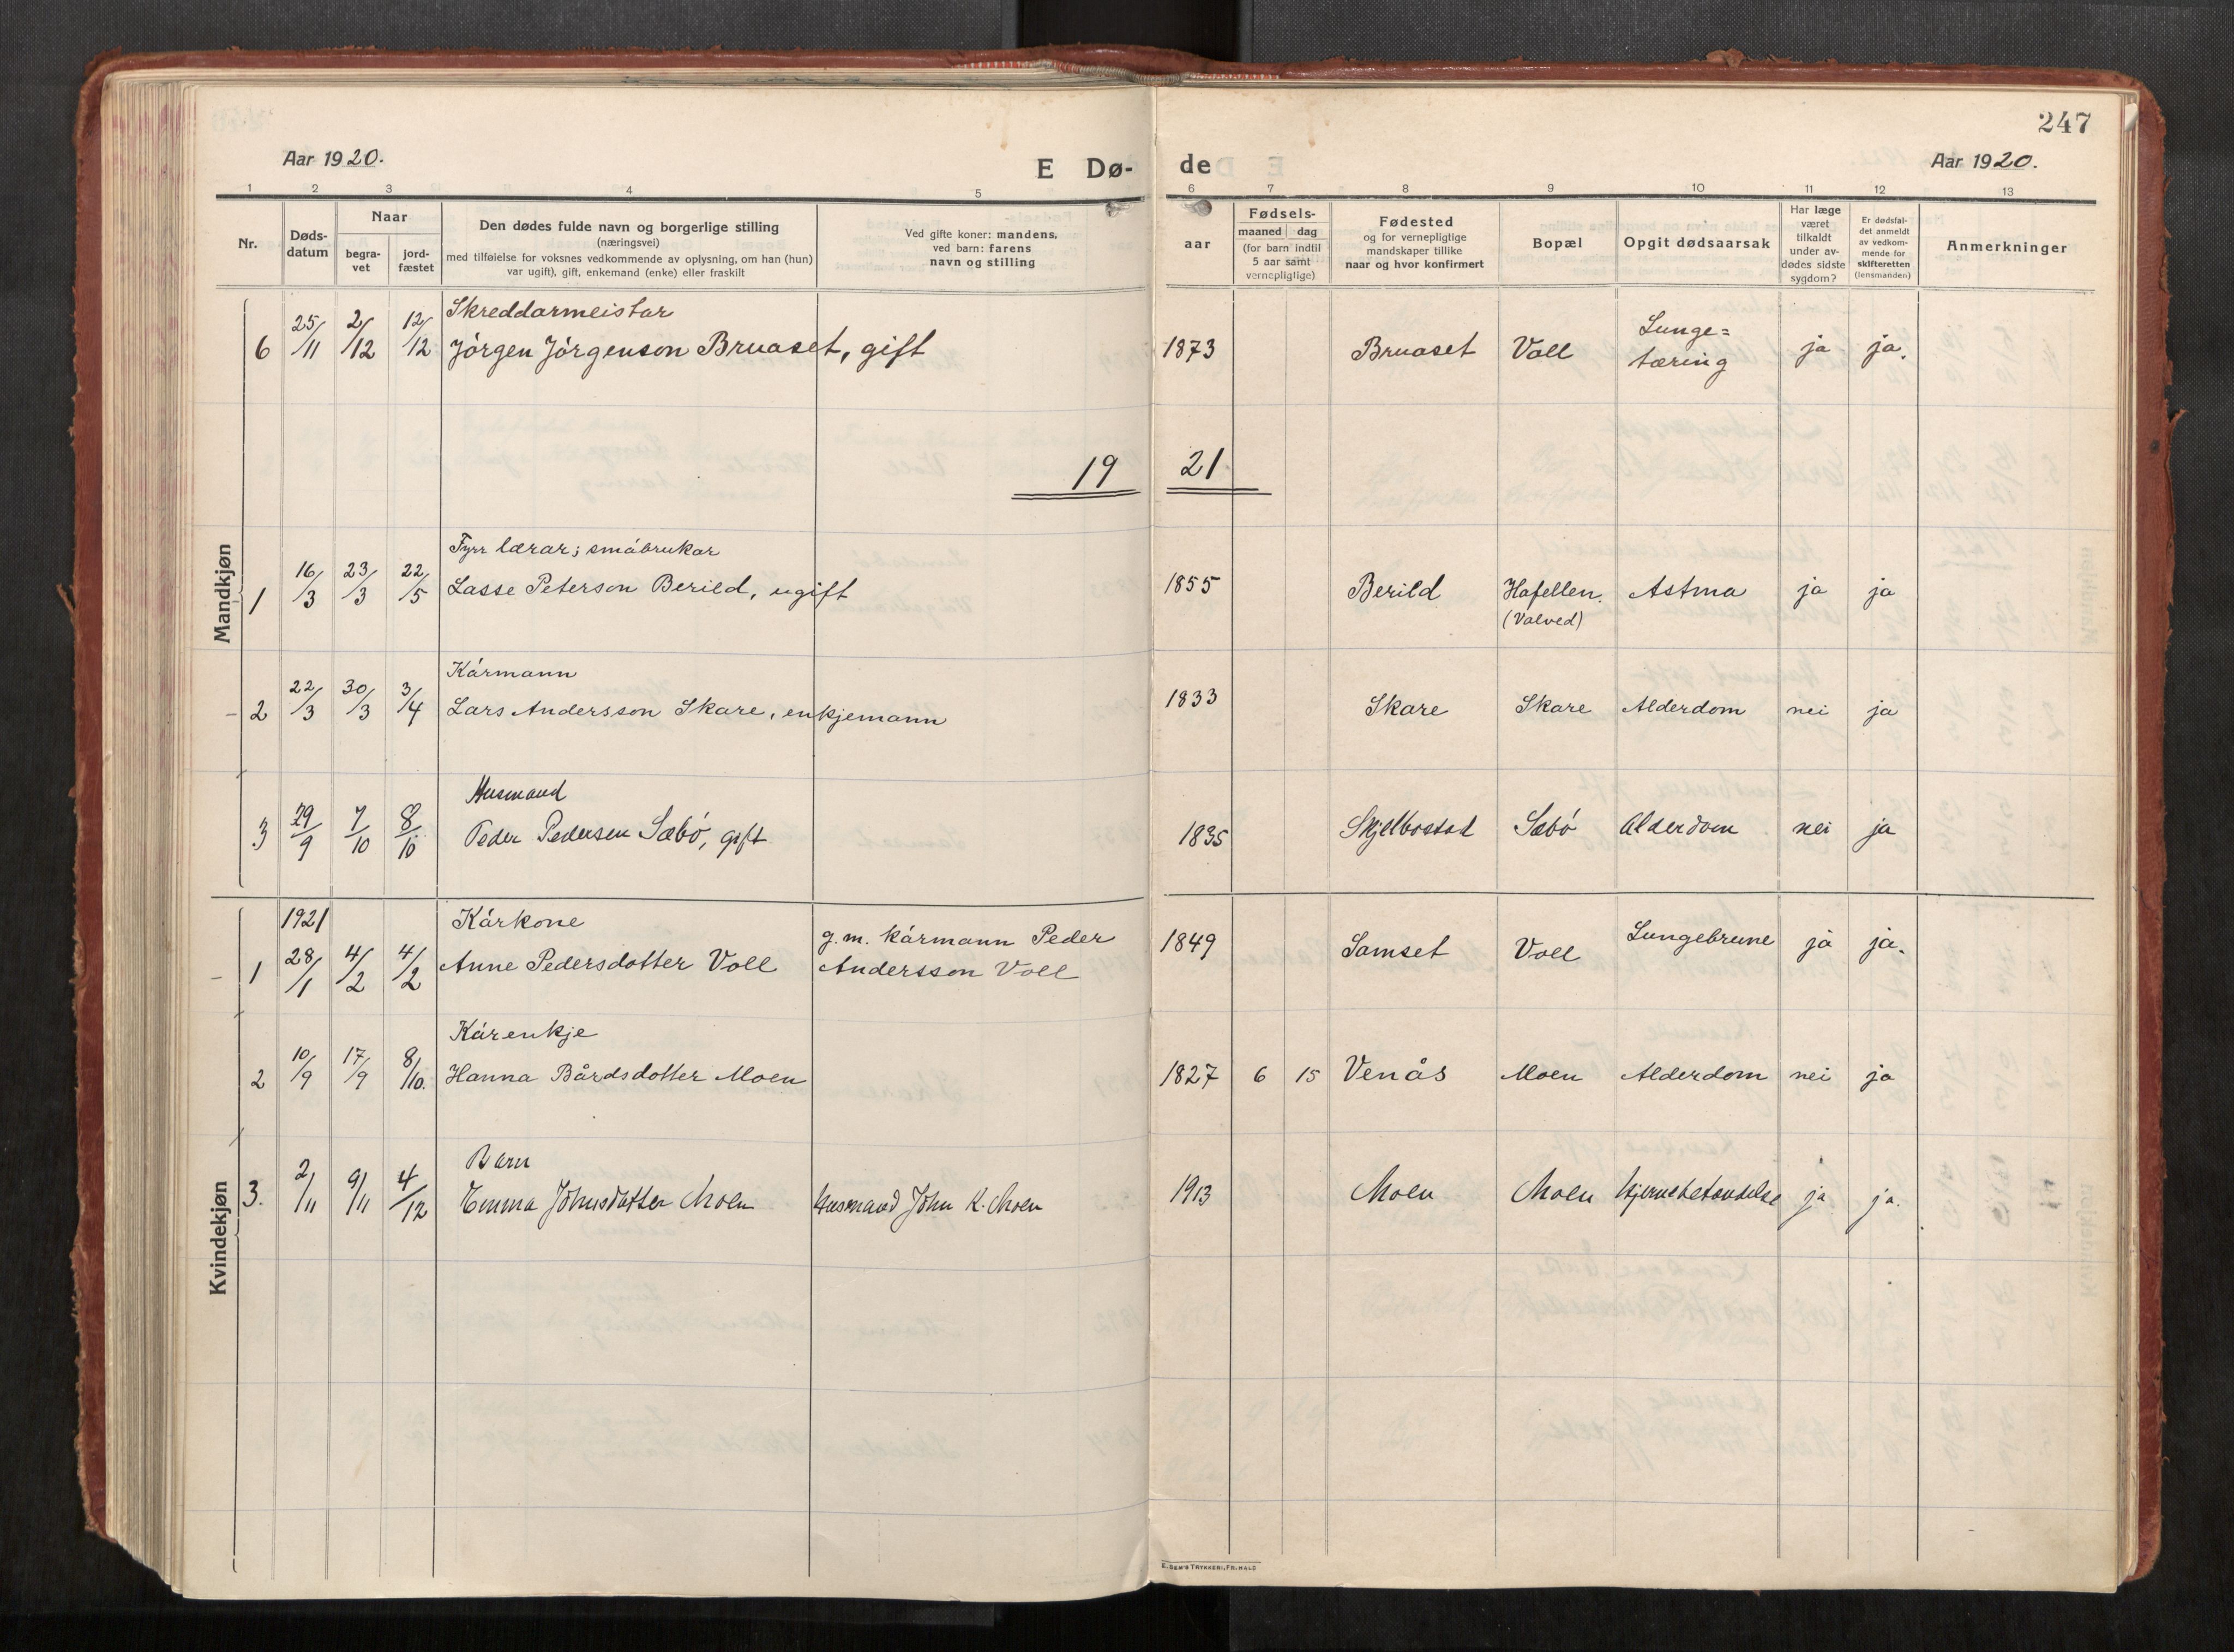 247
Aar 1920.
E Dø-
de
Aar 1920.
1 2 3 4 5 6 7 8 9 10 11 12 13
Nr.
Døds-
datum
Naar
begra-
vet
jord-
fæstet
Den dødes fulde navn og borgerlige stilling
(næringsvei)
med tilføielse for voksnes vedkommende av oplysning, om han (hun)
var ugift), gift, enkemand (enke) eller fraskilt
Ved gifte koner: mandens,
ved barn: farens
navn og stilling
aar
Fødsels-
maaned dag
(for barn indtil
5 aar samt
vernepligtige)
Fødested
og for vernepligtige
mandskaper tillike
naar og hvor konfirmert
Bopæl
Opgit dødsaarsak
Har læge
været
tilkaldt
under av-
dødes sidste
sygdom?
Er dødsfal-
det anmeldt
av vedkom-
mende for
skifteretten
(lensmanden)
Anmerkninger
Skreddarmeistar
6 25/11 2/12 12/12 Jórgen Jórgenson Bruaset, gift 1873 Bruaset Voll Lunge=
tæring ja ja.
19 21
Mandkjøn
Fyrr lærar; småbrukar
1 16/3 23/3 22/5 Lasse Peterson Berild, ugift 1855 Berild Hafellen. Astma ja ja
(Valved)
Kármann
2 22/3 30/3 3/4 Lars Andersson Skare, enkjemann 1833 Skare Skare Alderdom nei ja
Husmand
3 29/9 7/10 8/10 Peder Pedersen Sæbó, gift 1835 Skjelbostad Sæbó Alderdom nei ja
Kvindekjøn
1921 Kárkone
1 28/1 4/2 4/2 Anne Pedersdotter Voll g.m. kármann Peder
Andersson Voll 1849 Samset Voll Lungebrune ja ja.
Kárenkje
2 10/9 17/9 8/10. Hanna Bårdsdotter Moen 1827 6 15 Venås Moen Alderdom nei ja
Barn
3. 2/11 9/11 4/12 Emma Johnsdatter Moen Husmand John K. Moen 1913 Moen Moen Hjernebetændelse ja ja.
E. SEM'S TRYKKERI, FR.HALD